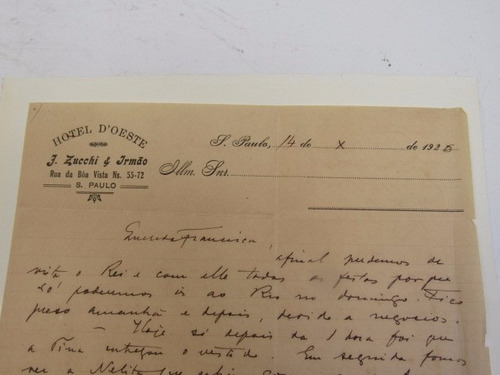 HOTEL D'OESTE
J. Zucchi & Irmão
Rua da Bôa Vista Ns. 55-72
S. PAULO
S. Paulo, 14 de X de 192
Illm. Snr.
Querida Francisca,
afinal perdemos de
vista o Rei e com elle todas as festas porque
só poderemos ir ao Rio no domingo. Fico
preso amanhã e depois, devido a negocios.
— Hoje só depois da 1 hora foi que
a Tina entregou o vestido. Em seguida fomos
ver a Nelita que